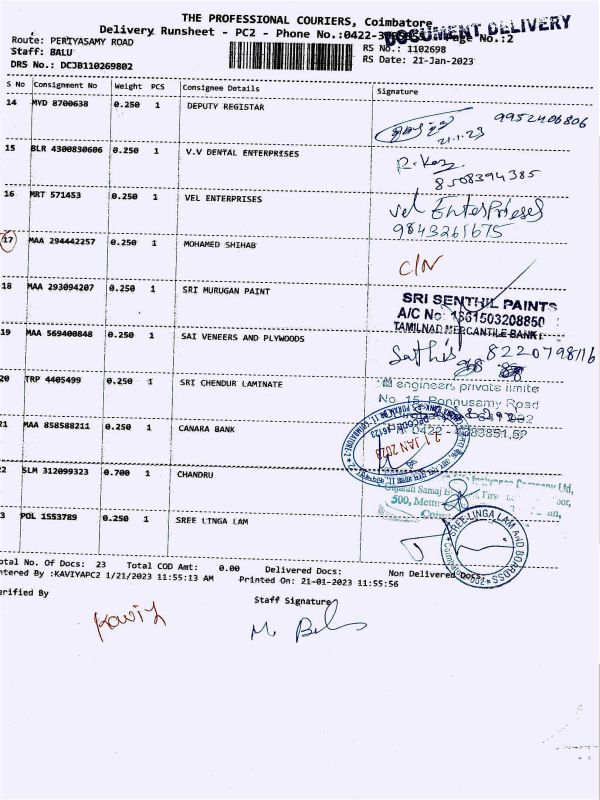 THE PROFESSIONAL COURIERS, Coimbatore
Delivery Runsheet - PC2 - Phone No.:0422- Page No.:2
DOCUMENT DELIVERY
Route: PERIYASAMY ROAD
RS No.: 1102698
Staff: BALU
RS Date: 21-Jan-2023
DRS No.: DCJB110269802
S No Consignment No Weight PCS Consignee Details Signature
14 MYD 8700638 0.250 1 DEPUTY REGISTAR
9952406806
21.1.23
15 BLR 4300830606 0.250 1 V.V DENTAL ENTERPRISES
8508394385
16 MRT 571453 0.250 1 VEL ENTERPRISES
Vel Enterprises
9843261675
17 MAA 294442257 0.250 1 MOHAMED SHIHAB
C/N
18 MAA 293094207 0.250 1 SRI MURUGAN PAINT
SRI SENTHIL PAINTS
A/C No: 1661503208850
TAMILNAD MERCANTILE BANK
19 MAA 569400848 0.250 1 SAI VENEERS AND PLYWOODS
Sathis 8220798116
20 TRP 4405499 0.250 1 SRI CHENDUR LAMINATE
engineers private limite
No. 15, Ponnusamy Road
21 MAA 858588211 0.250 1 CANARA BANK
21 JAN 2023
22 SLM 312099323 0.700 1 CHANDRU
Insurance Company Ltd,
Gujarati Samaj
500, Mettu
23 POL 1553789 0.250 1 SREE LINGA LAM
SREE LINGA LAM AND BOARDSS
Total No. Of Docs: 23 Total COD Amt: 0.00 Delivered Docs: Non Delivered Docs:
Entered By :KAVIYAPC2 1/21/2023 11:55:13 AM Printed On: 21-01-2023 11:55:56
Verified By
Staff Signature
Kaviya
M. Balu